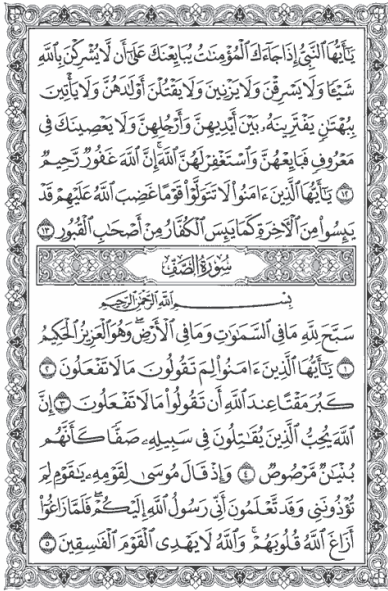 يَـٰٓأَيُّهَا ٱلنَّبِىُّ إِذَا جَآءَكَ ٱلْمُؤْمِنَـٰتُ يُبَايِعْنَكَ عَلَىٰٓ أَن لَّا يُشْرِكْنَ بِٱللَّهِ
شَيْـًٔا وَلَا يَسْرِقْنَ وَلَا يَزْنِينَ وَلَا يَقْتُلْنَ أَوْلَـٰدَهُنَّ وَلَا يَأْتِينَ
بِبُهْتَـٰنٍ يَفْتَرِينَهُۥ بَيْنَ أَيْدِيهِنَّ وَأَرْجُلِهِنَّ وَلَا يَعْصِينَكَ فِى
مَعْرُوفٍ فَبَايِعْهُنَّ وَٱسْتَغْفِرْ لَهُنَّ ٱللَّهَ إِنَّ ٱللَّهَ غَفُورٌ رَّحِيمٌ
١٢ يَـٰٓأَيُّهَا ٱلَّذِينَ ءَامَنُوا۟ لَا تَتَوَلَّوْا۟ قَوْمًا غَضِبَ ٱللَّهُ عَلَيْهِمْ قَدْ
يَئِسُوا۟ مِنَ ٱلْـَٔاخِرَةِ كَمَا يَئِسَ ٱلْكُفَّارُ مِنْ أَصْحَـٰبِ ٱلْقُبُورِ ١٣
سُورَةُ ٱلصَّفِّ
بِسْمِ ٱللَّهِ ٱلرَّحْمَـٰنِ ٱلرَّحِيمِ
سَبَّحَ لِلَّهِ مَا فِى ٱلسَّمَـٰوَٰتِ وَمَا فِى ٱلْأَرْضِ وَهُوَ ٱلْعَزِيزُ ٱلْحَكِيمُ
١ يَـٰٓأَيُّهَا ٱلَّذِينَ ءَامَنُوا۟ لِمَ تَقُولُونَ مَا لَا تَفْعَلُونَ ٢
كَبُرَ مَقْتًا عِندَ ٱللَّهِ أَن تَقُولُوا۟ مَا لَا تَفْعَلُونَ ٣ إِنَّ
ٱللَّهَ يُحِبُّ ٱلَّذِينَ يُقَـٰتِلُونَ فِى سَبِيلِهِۦ صَفًّا كَأَنَّهُم
بُنْيَـٰنٌ مَّرْصُوصٌ ٤ وَإِذْ قَالَ مُوسَىٰ لِقَوْمِهِۦ يَـٰقَوْمِ لِمَ
تُؤْذُونَنِى وَقَد تَّعْلَمُونَ أَنِّى رَسُولُ ٱللَّهِ إِلَيْكُمْ فَلَمَّا زَاغُوٓا۟
أَزَاغَ ٱللَّهُ قُلُوبَهُمْ وَٱللَّهُ لَا يَهْدِى ٱلْقَوْمَ ٱلْفَـٰسِقِينَ ٥